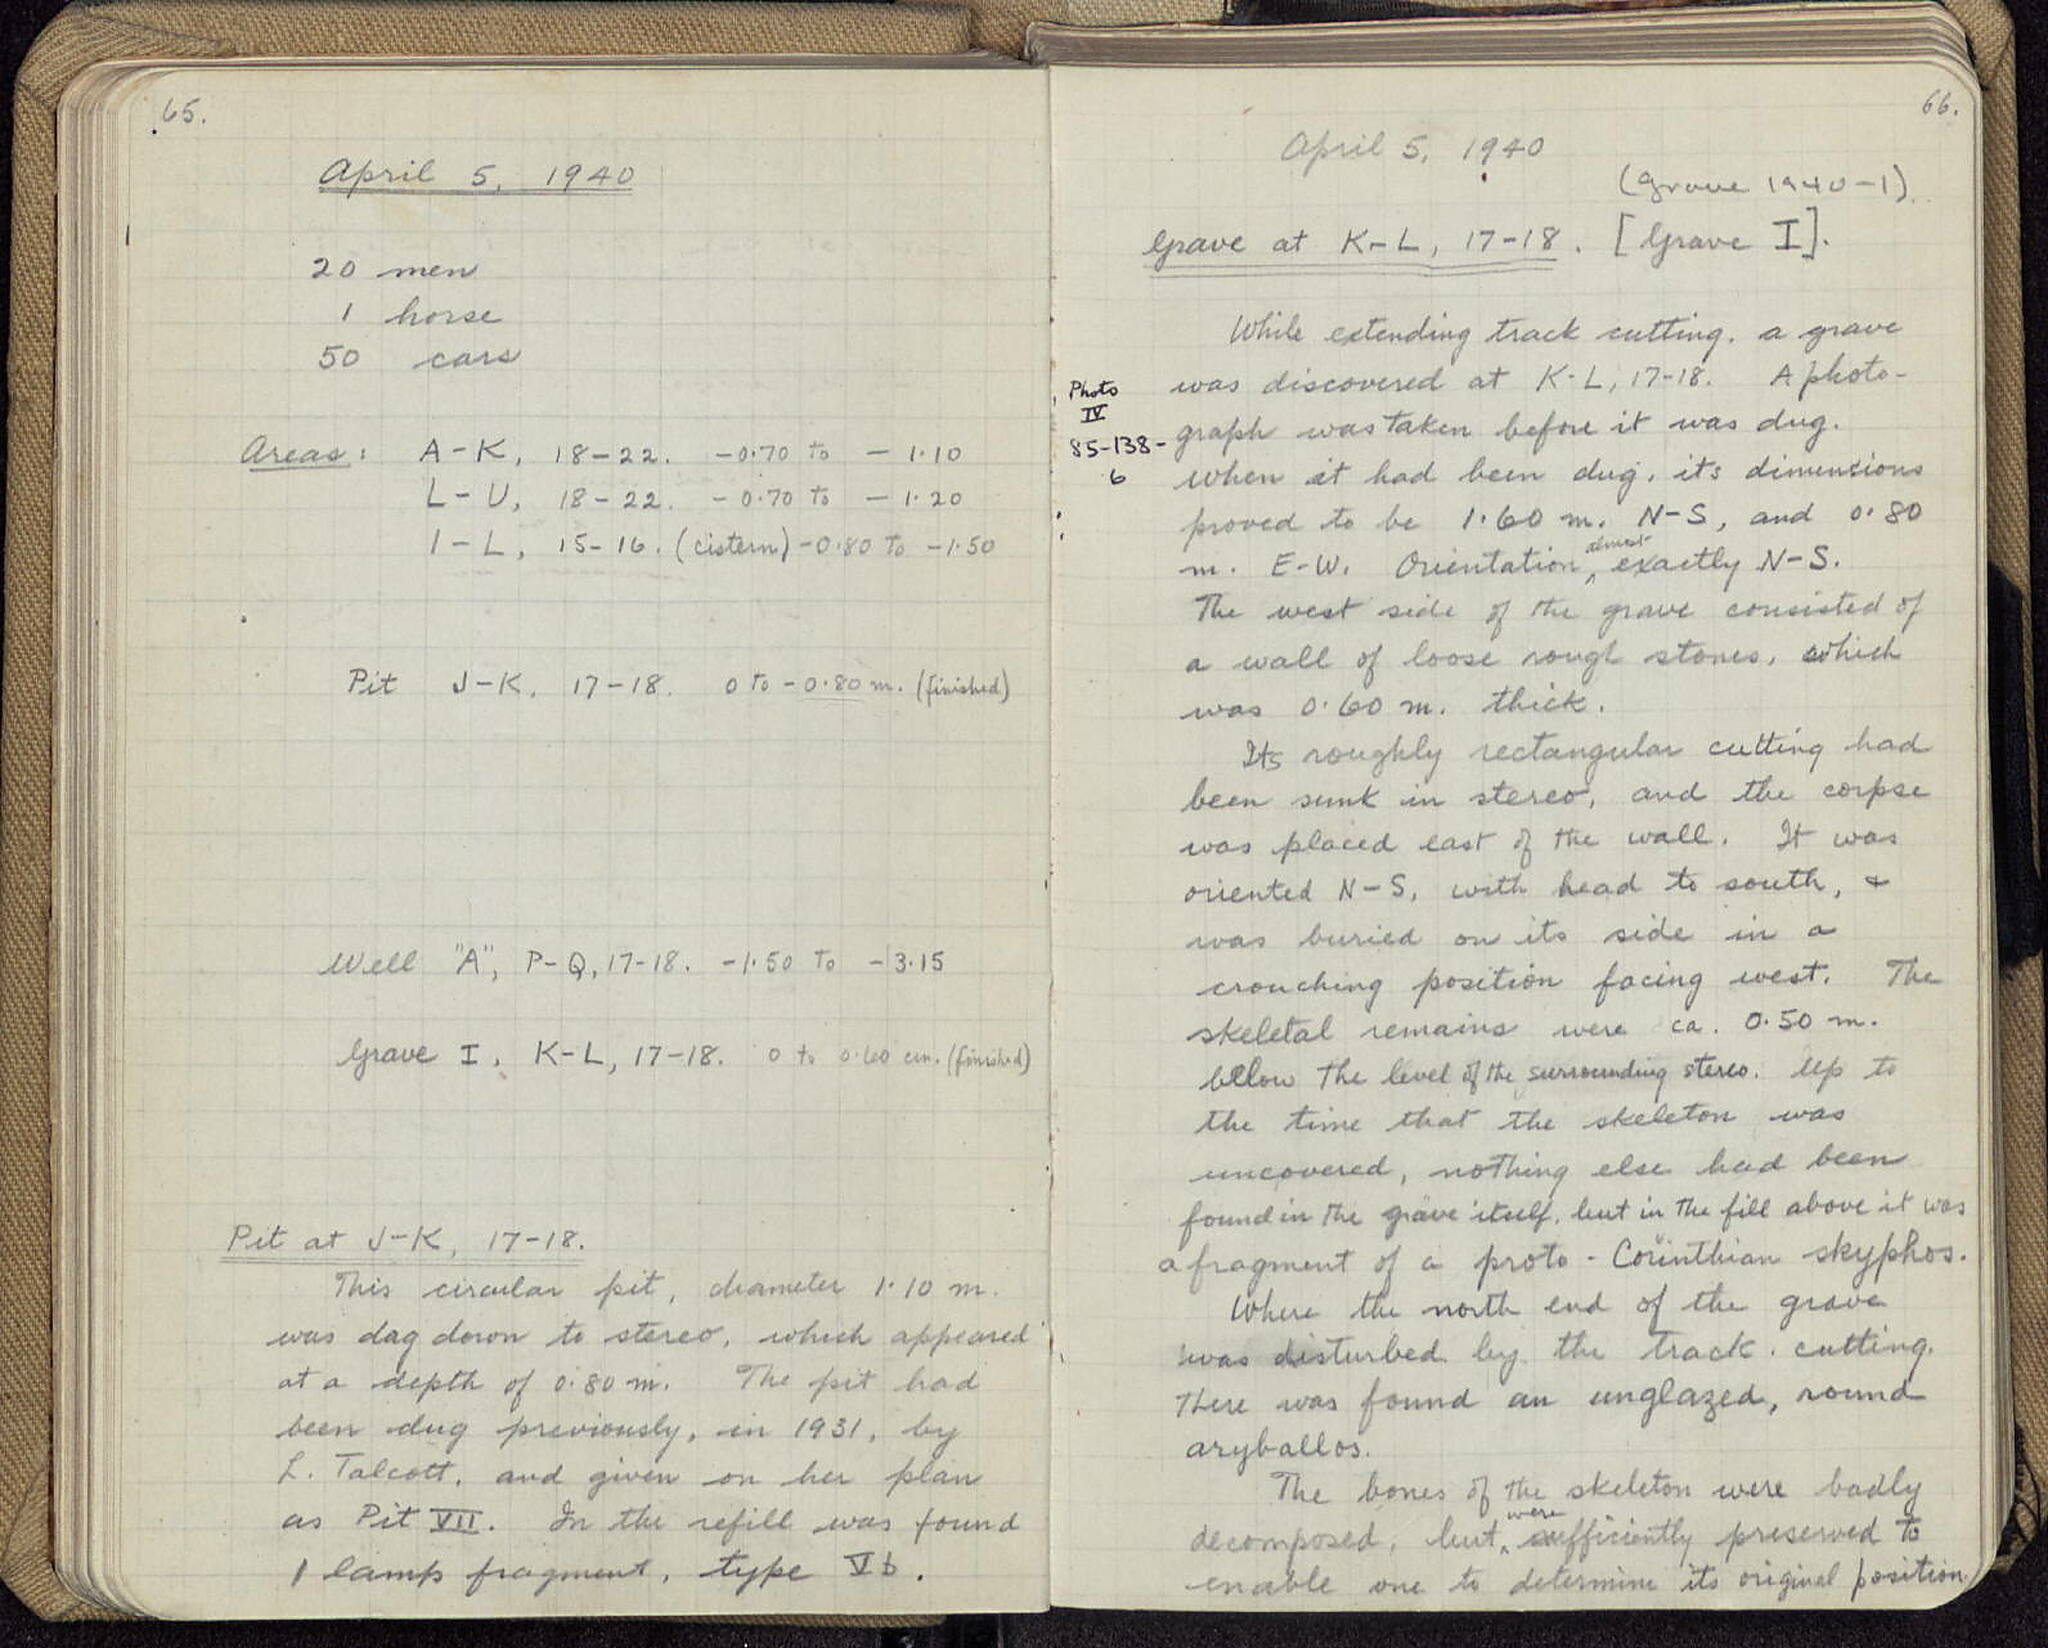 65.
April 5, 1940
20 men
1 horse
50 cars
Areas: A-K, 18-22. -0.70 to -1.10
L-U, 18-22. -0.70 to -1.20
I-L, 15-16. (cistern) -0.80 to -1.50
Pit J-K, 17-18. 0 to -0.80 m. (finished)
Well "A", P-Q, 17-18. -1.50 to -3.15
Grave I, K-L, 17-18. 0 to 0.60 cm. (finished)
Pit at J-K, 17-18.
This circular pit, diameter 1.10 m.
was dug down to stereo, which appeared
at a depth of 0.80 m. The pit had
been dug previously, in 1931, by
L. Talcott, and given on her plan
as Pit VII. In the refill was found
1 lamp fragment, type Vb.
66.
April 5, 1940
(Grave 1940-1)
Grave at K-L, 17-18. [Grave I].
While extending track cutting, a grave
was discovered at K-L, 17-18. A photo-
graph was taken before it was dug.
Photo
IV
85-138-
6
When it had been dug, its dimensions
proved to be 1.60 m. N-S, and 0.80
m. E-W. Orientation almost exactly N-S.
The west side of the grave consisted of
a wall of loose rough stones, which
was 0.60 m. thick.
Its roughly rectangular cutting had
been sunk in stereo, and the corpse
was placed east of the wall. It was
oriented N-S, with head to south, &
was buried on its side in a
crouching position facing west. The
skeletal remains were ca. 0.50 m.
below the level of the surrounding stereo. Up to
the time that the skeleton was
uncovered, nothing else had been
found in the grave itself, but in the fill above it was
a fragment of a proto-Corinthian skyphos.
Where the north end of the grave
was disturbed by the track cutting,
there was found an unglazed, round
aryballos.
The bones of the skeleton were badly
decomposed, but were sufficiently preserved to
enable one to determine its original position.